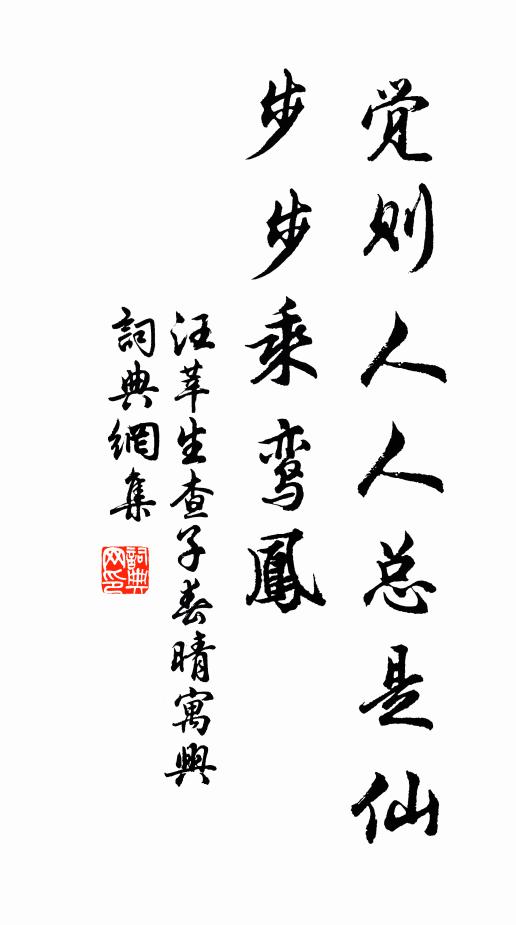 觉则人人总是仙
步步乘鸾鳳
汪莘生查子春晴寓興
詞典網集
詞典网印